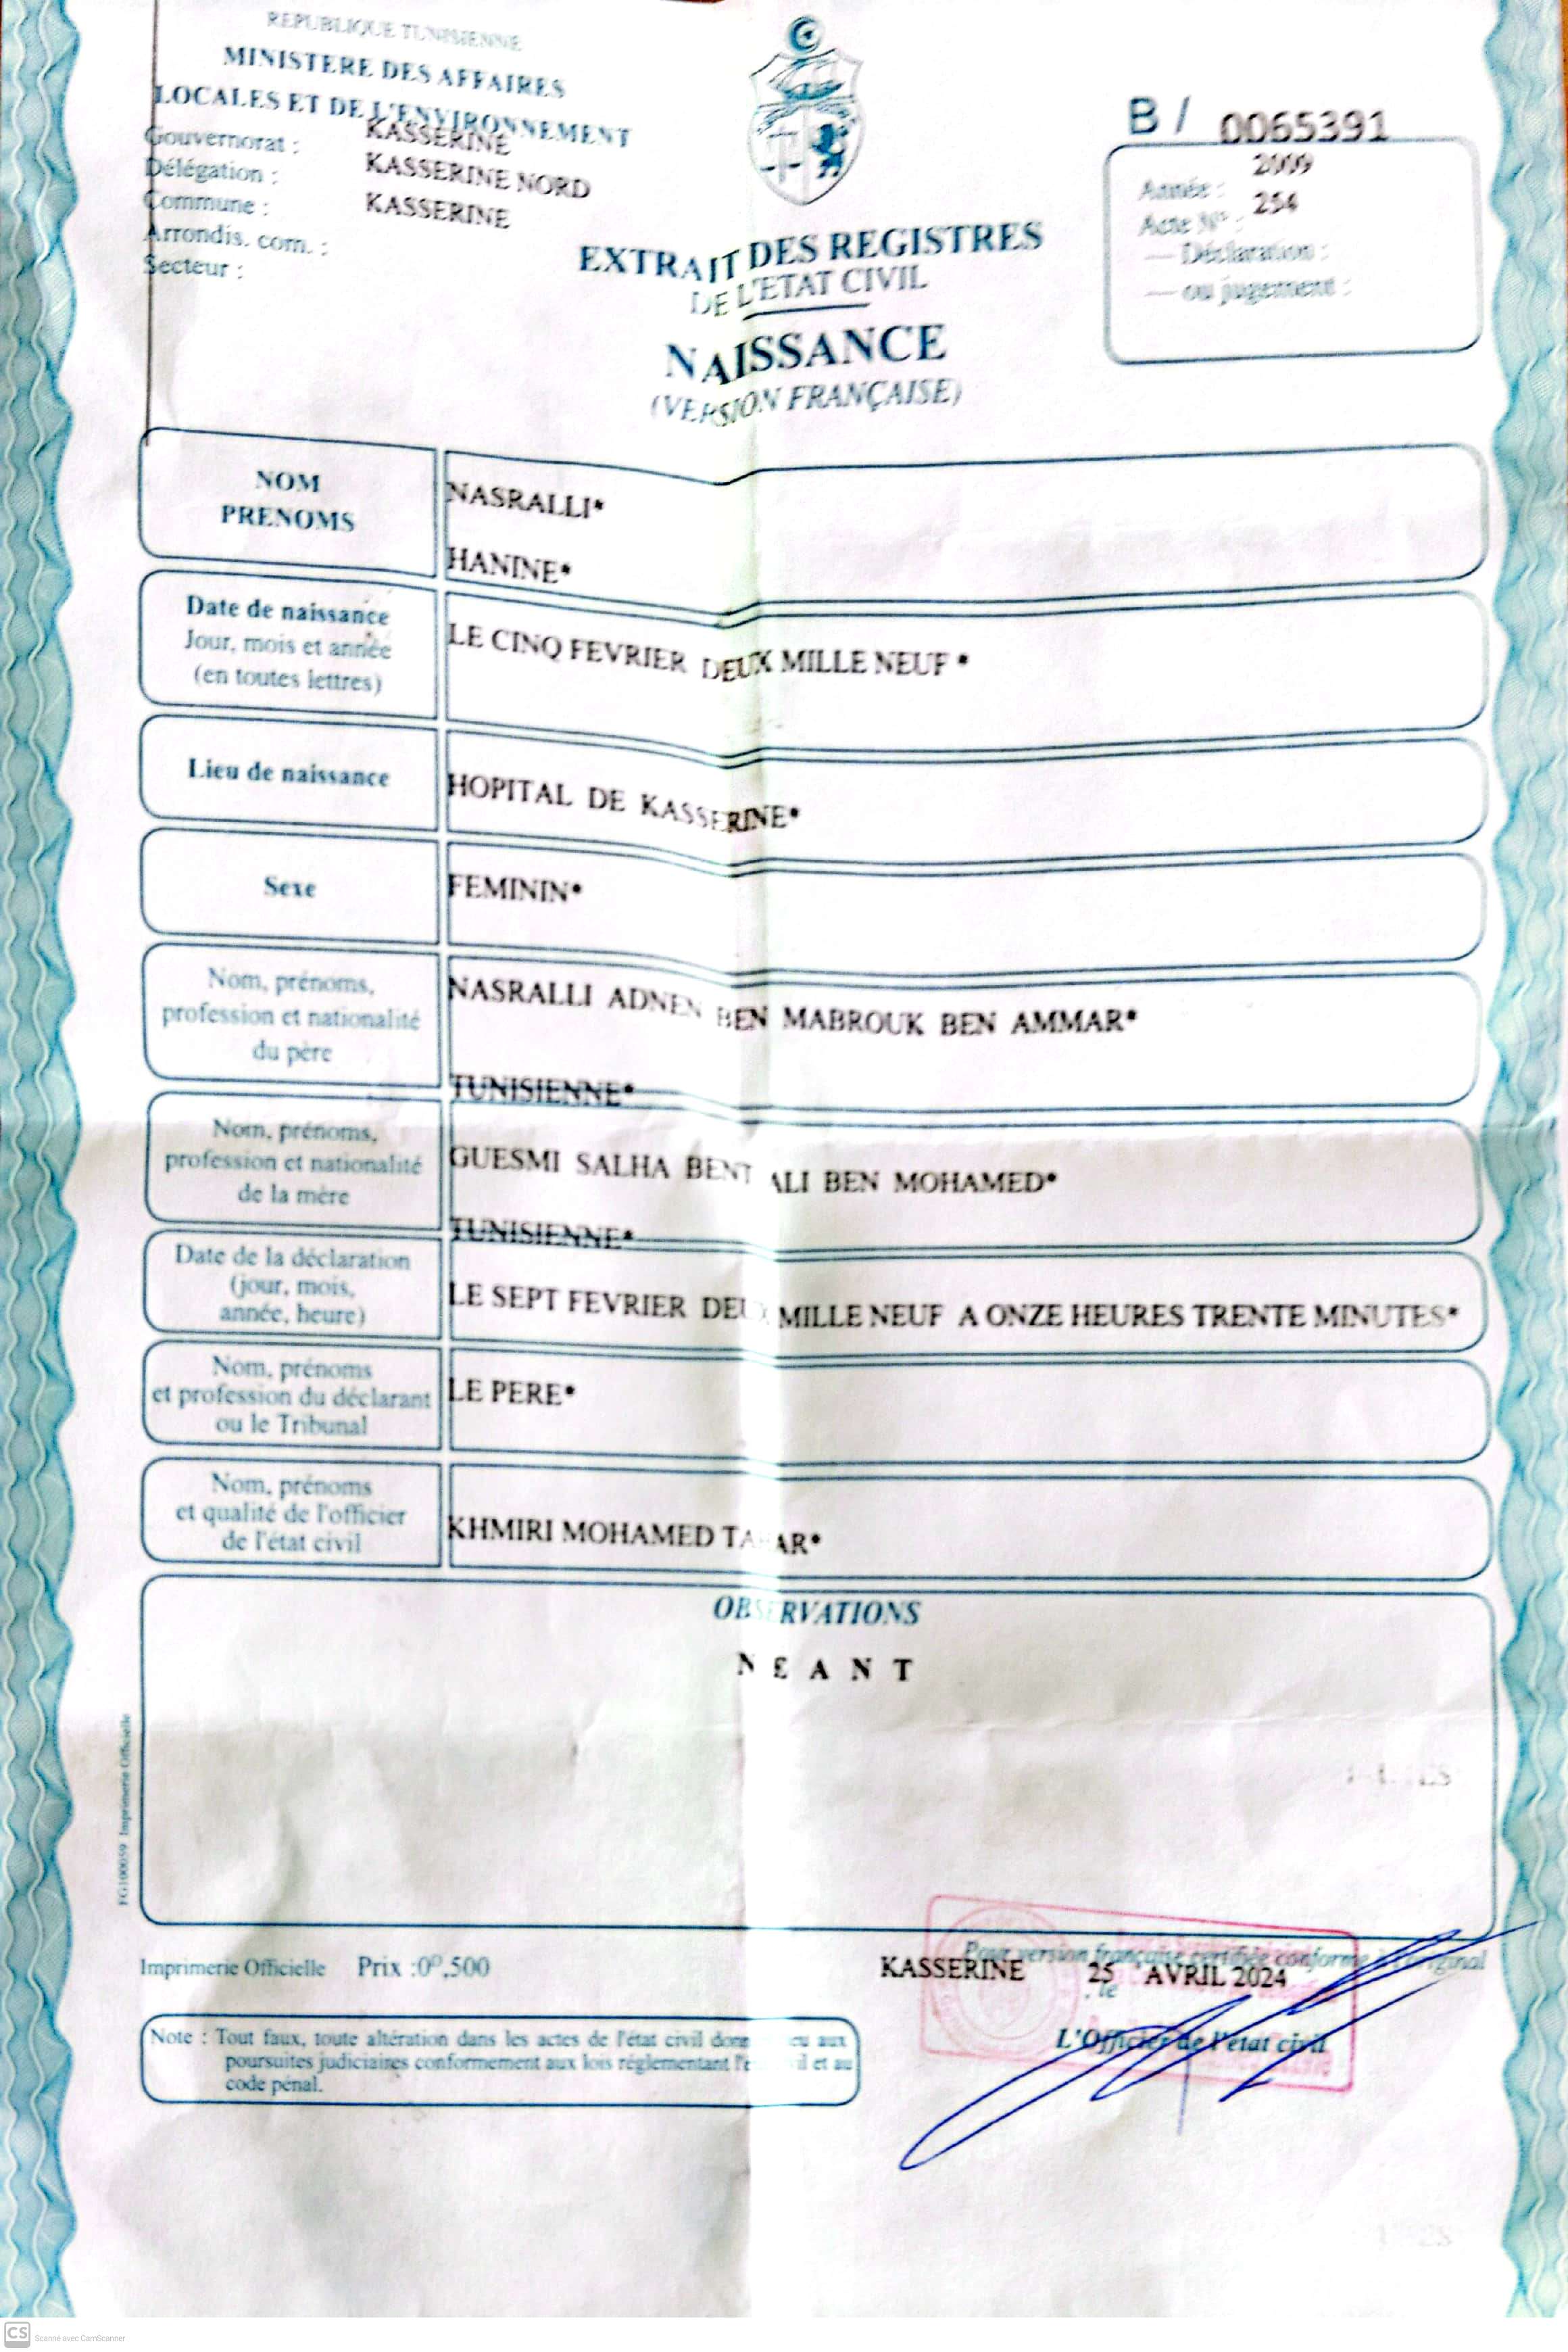 REPUBLIQUE TUNISIENNE
MINISTERE DES AFFAIRES
LOCALES ET DE L'ENVIRONNEMENT
Gouvernorat : KASSERINE
Délégation : KASSERINE NORD
Commune : KASSERINE
Arrondis. com. :
Secteur :
B / 0065391
Année : 2009
Acte N° : 254
— Déclaration :
— ou jugement :
EXTRAIT DES REGISTRES
DE L'ETAT CIVIL
NAISSANCE
(VERSION FRANÇAISE)
NOM
PRENOMS
NASRALLI*
HANINE*
Date de naissance
Jour, mois et année
(en toutes lettres)
LE CINQ FEVRIER DEUX MILLE NEUF *
Lieu de naissance
HOPITAL DE KASSERINE*
Sexe
FEMININ*
Nom, prénoms,
profession et nationalité
du père
NASRALLI ADNEN BEN MABROUK BEN AMMAR*
TUNISIENNE*
Nom, prénoms,
profession et nationalité
de la mère
GUESMI SALHA BENT ALI BEN MOHAMED*
TUNISIENNE*
Date de la déclaration
(jour, mois,
année, heure)
LE SEPT FEVRIER DEUX MILLE NEUF A ONZE HEURES TRENTE MINUTES*
Nom, prénoms
et profession du déclarant
ou le Tribunal
LE PERE*
Nom, prénoms
et qualité de l'officier
de l'état civil
KHMIRI MOHAMED
OBSERVATIONS
NEANT
Imprimerie Officielle
Imprimerie Officielle Prix :0D,500
Pour version française certifiée conforme à l'original
KASSERINE , le 25 AVRIL 2024
L'Officier de l'état civil
Note : Tout faux, toute altération dans les actes de l'état civil aux
poursuites judiciaires conformement aux lois réglementant et au
code pénal.
CS Scanné avec CamScanner